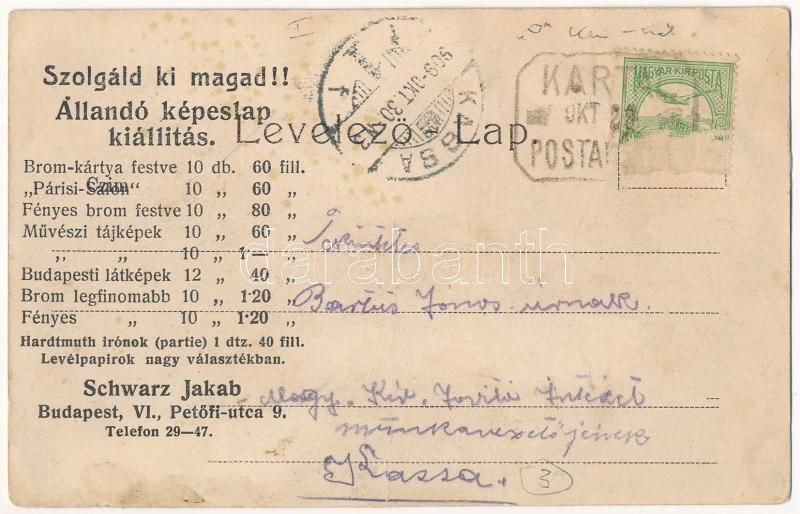 Szolgáld ki magad!!
Állandó képeslap
kiállitás.
Levelező Lap
Brom-kártya festve 10 db. 60 fill.
„Párisi-Salon“ 10 „ 60 „
Czim
Fényes brom festve 10 „ 80 „
Művészi tájképek 10 „ 60 „
„ „ 10 „ 1·— „
Budapesti látképek 12 „ 40 „
Brom legfinomabb 10 „ 1·20 „
Fényes „ 10 „ 1·20 „
Hardtmuth irónok (partie) 1 dtz. 40 fill.
Levélpapirok nagy választékban.
Schwarz Jakab
Budapest, VI., Petőfi-utca 9.
Telefon 29—47.
KASSA
909 OKT 30
KART
OKT
POSTA
MAGYAR·KIR·POSTA
Tekintetes
Bartus Jonos urnak
Magy. Kir. Javitó Intézet
munkavezetőjének
Kassa.
3
darabanth